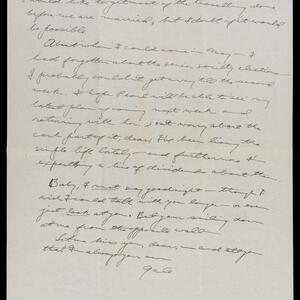 would like to get most of the travelling done
before we are married, but I doubt if it would
be possible.
About when I could come in May — I
had forgotten about the senior society elections —
I probably couldn't get away till the second
week. I hope Pearl will be able to see my
latest plan of coming next week and
returning with her. Don't worry about the
cost part of it, dear. I've been living the
simple life lately — and furthermore I'm
expecting a line of dividends about then.
Baby, I must say goodnight — though I
wish I could talk with you longer — or even
just look at you. But your smiling down
at me from the opposite wall.
Let me kiss you, dear, — and tell you
that I'm always your own